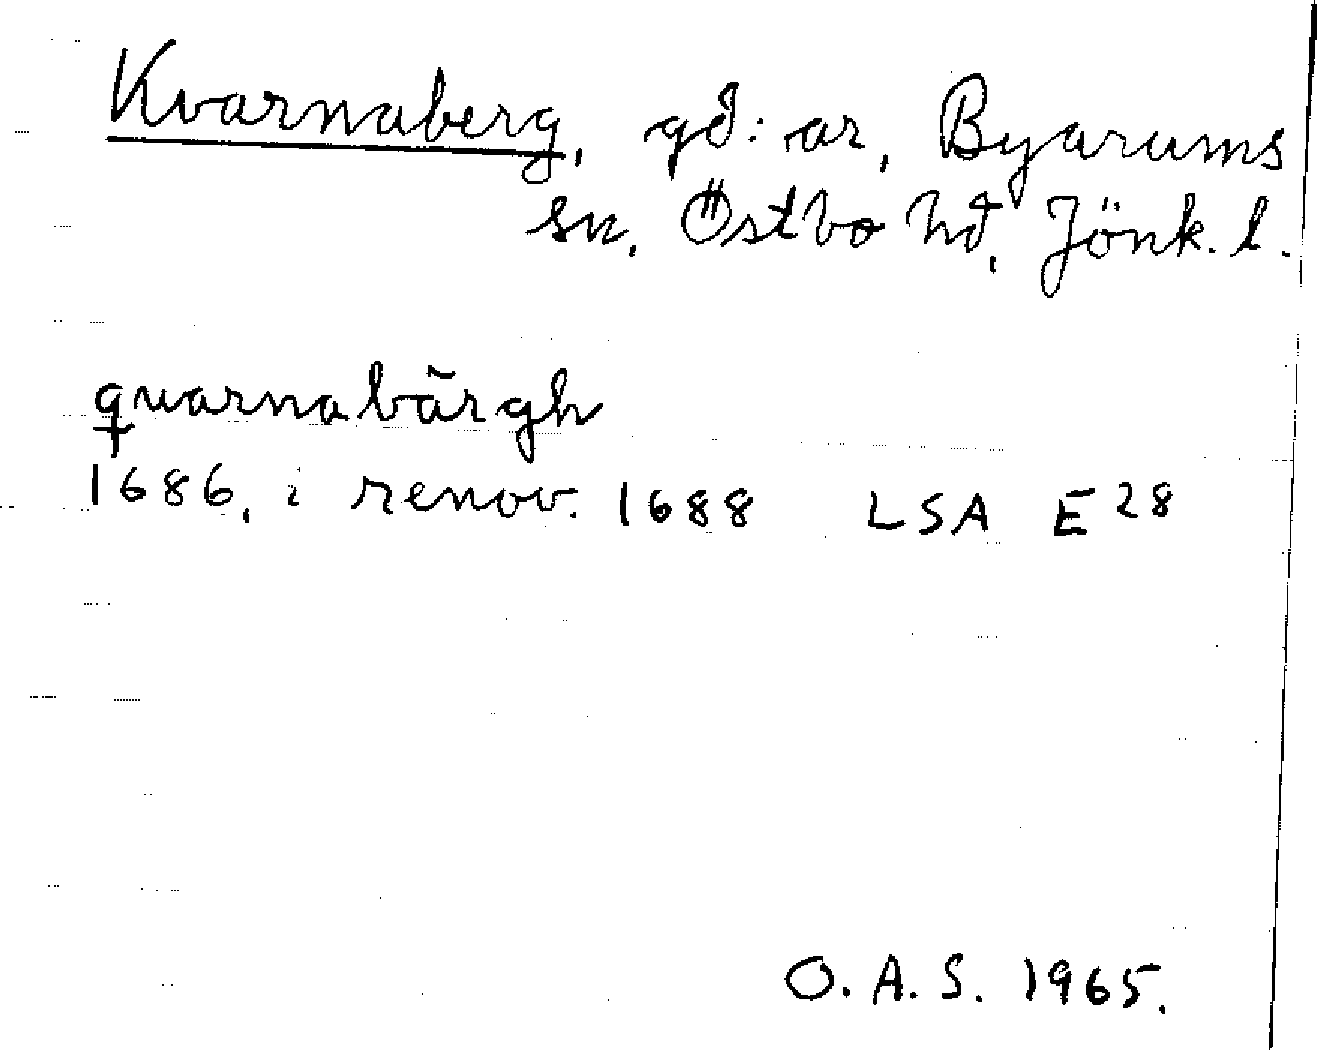 Kvarnaberg, gd:ar, Byarums
sn, Östbo hd, Jönk. l.
quarnabärgh
1686, i renov. 1688 LSA E28
O.A.S. 1965.